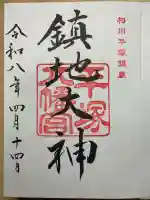 相州平塚鎮座
鎮地大神
平塚八幡宮
令和八年四月十四日